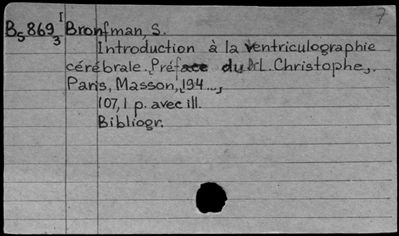 7
I
B5 869 Bronfman, S.
3
Introduction à la ventriculographie
cérébrale. Préface du Dr L. Christophe,.
Paris, Masson, [194...,
107, 1 p. avec ill.
Bibliogr.